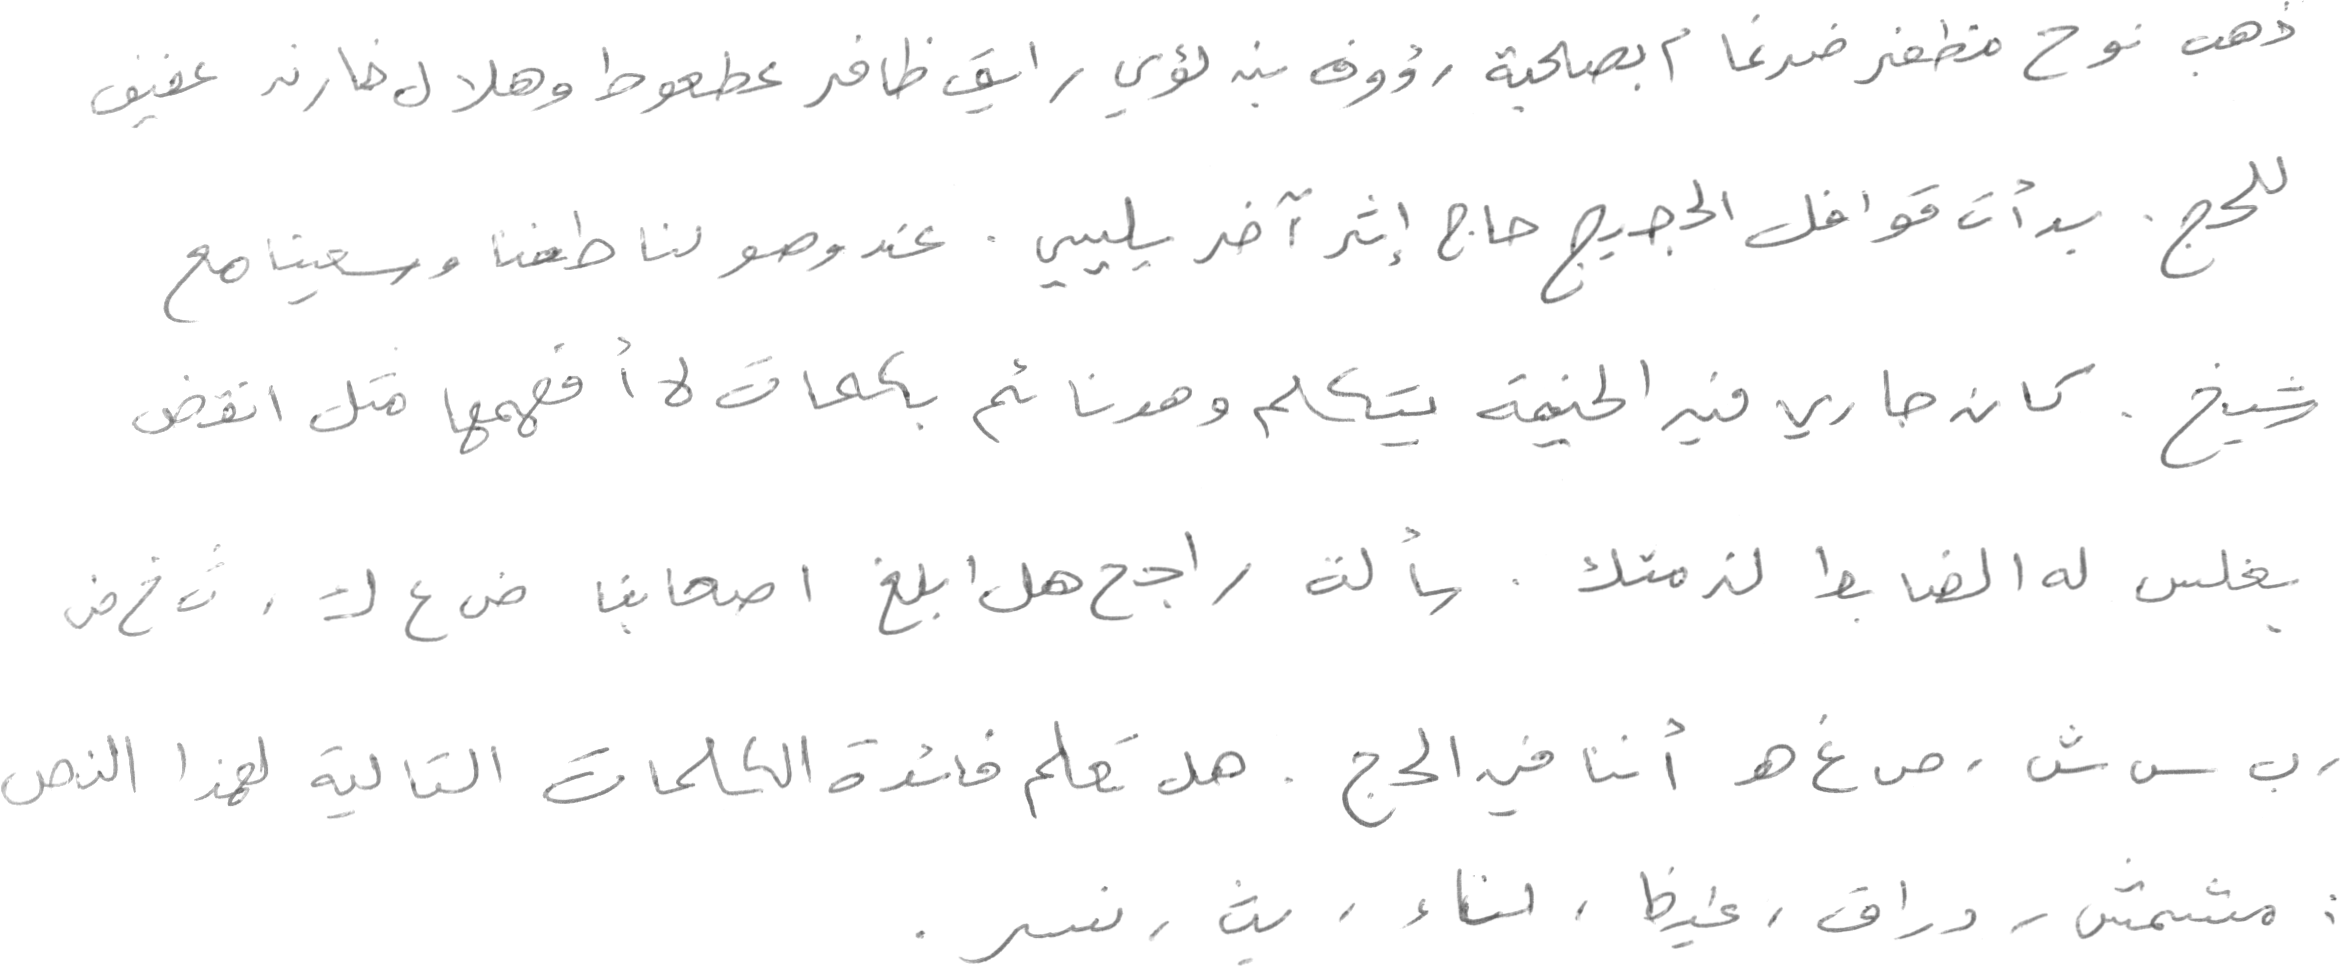 ذهب نوح مظفر ضرغام بصحبة رؤوف بن لؤي رايق ظافر عطعوط وهلال خازن عفيف
للحج . بدأت قوافل الحجيج حاج إثر آخر يلبي . عند وصولنا طفنا وسعينا مع
شيخ . كان جاري في الخيمة يتكلم وهو نائم بكلمات لا أفهمها مثل انقض
يغلس له الضابط لذمتك . سألة راجح هل ابلغ اصحابنا ض ع ك ، ث خ ض
، ب س ش ، ص غ ه أننا في الحج . هل تعلم فائدة الكلمات التالية لهذا النص
: مشمش ، دراق ، غيظ ، لناء ، يث ، نسر .